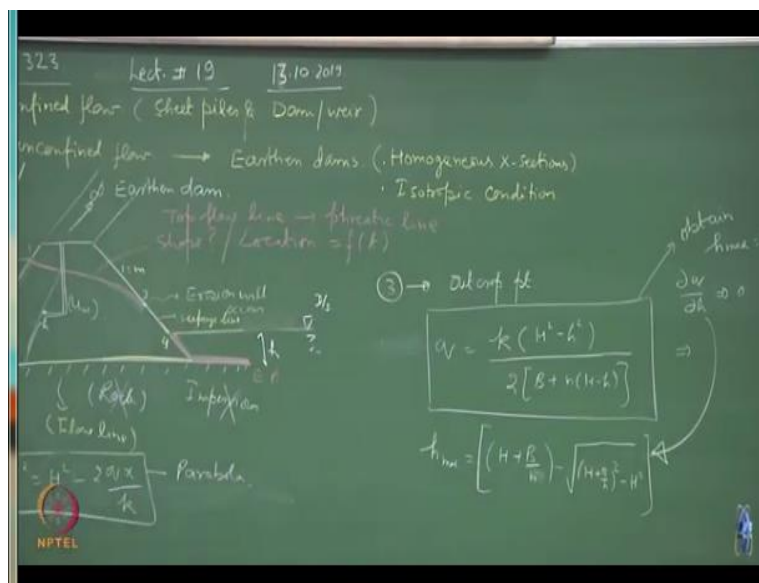 323 Lect. # 19 13.10 2019
nfined flow ( Sheet piles & Dam/weir )
unconfined flow → Earthen dams. ( . Homogeneous X-sections)
· Isotropic condition
Earthen dam.
Top flow line → phreatic line
shape? / Location = f(k)
1:m
(Uw)
→ Erosion will occur
seepage line
D/s
h
4
(Rock) Impervious
(Flow line)
² = H² - 2qx/k — Parabola
③ → Outcrop pt
obtain
hmax =
∂q/∂h ⇒ 0
q = k(H² - h²) / 2[B + n(H-h)] ⇒
hmax = [(H + B/n) - √((H + B/n)² - H²)]
NPTEL